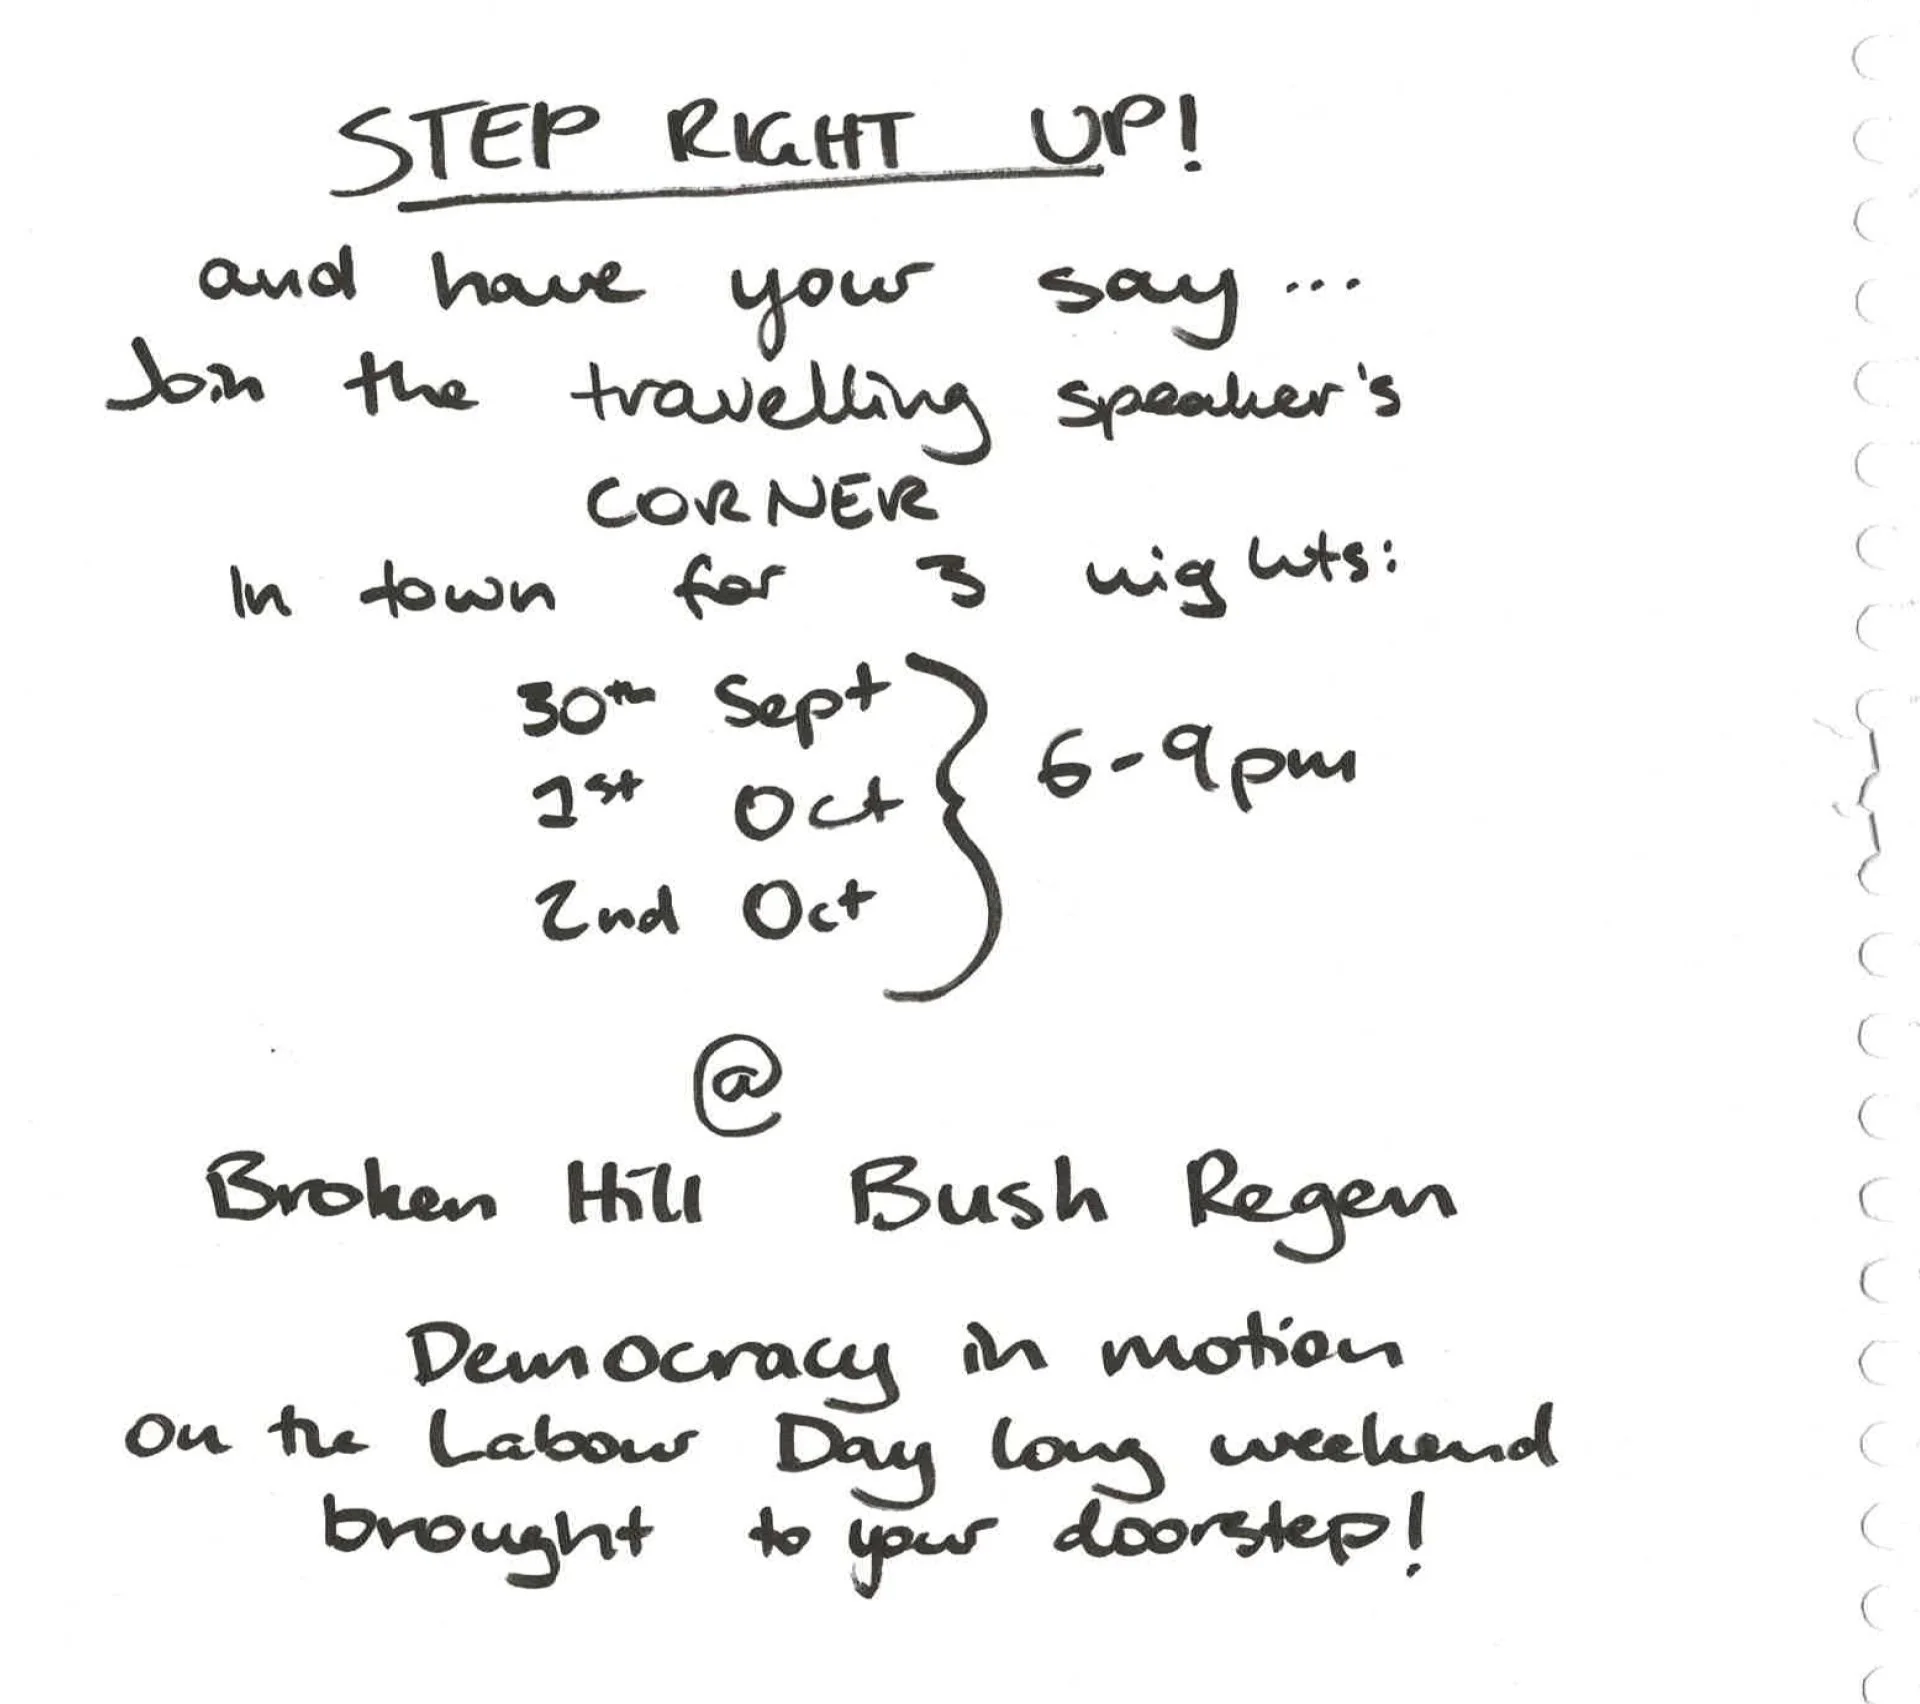 STEP RIGHT UP!
and have your say...
Join the travelling speaker's
CORNER
In town for 3 nights:
30th Sept
1st Oct
2nd Oct
6-9pm
@
Broken Hill Bush Regen
Democracy in motion
on the Labour Day long weekend
brought to your doorstep!